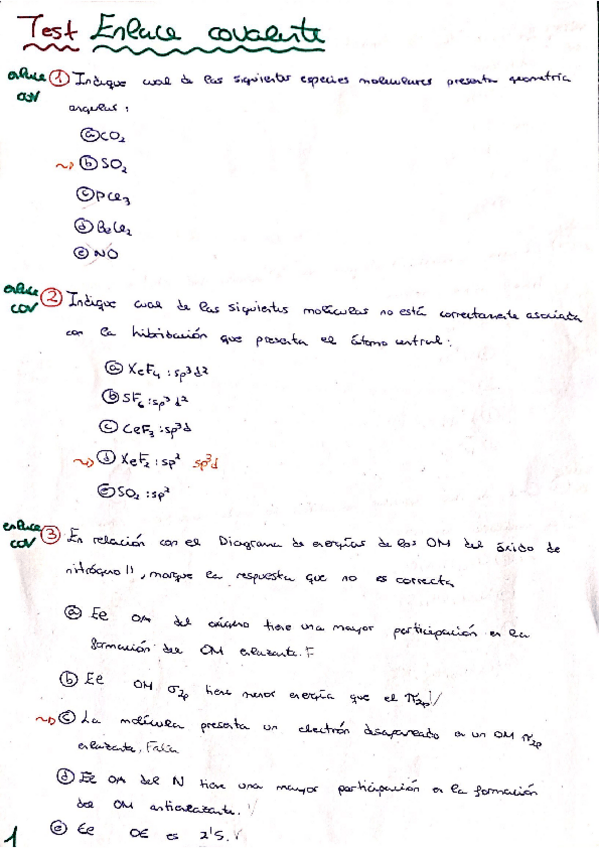 Test Enlace covalente
enlace cov ① Indique cual de las siguientes especies moleculares presenta geometría
angular:
ⓐ CO₂
~> ⓑ SO₂
ⓒ PCl₃
ⓓ BeCl₂
ⓔ NO
enlace cov ② Indique cual de las siguientes moléculas no está correctamente asociada
con la hibridación que presenta el átomo central:
ⓐ XeF₄ : sp³d²
ⓑ SF₆ : sp³d²
ⓒ ClF₃ : sp³d
~> ⓓ XeF₂ : sp² sp³d
ⓔ SO₂ : sp²
enlace cov ③ En relación con el Diagrama de energías de los OM del óxido de
nitrógeno II, marque la respuesta que no es correcta
ⓐ El OA del oxígeno tiene una mayor participación en la
formación del OM enlazante. F
ⓑ El OM σ₂p tiene menor energía que el π₂p V
~> ⓒ La molécula presenta un electrón desapareado en un OM π₂p
enlazante. Falsa
ⓓ El OA del N tiene una mayor participación en la formación
del OM antienlazante. V
ⓔ El OE es 2'5. V
1